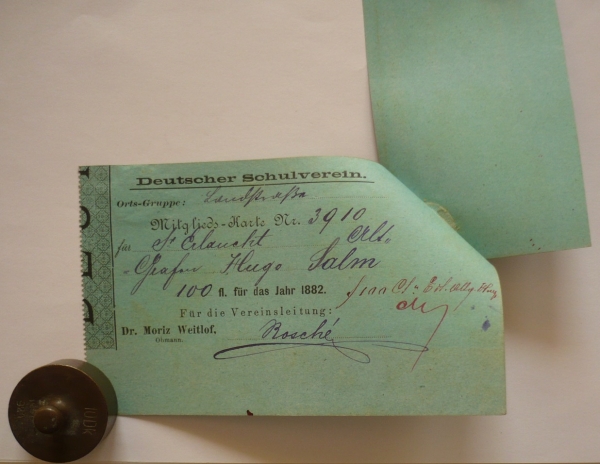 Deutscher Schulverein.
Orts-Gruppe: Landstraße
Mitglieds-Karte Nr. 3910
für Sr Erlaucht Alt-
-Grafen Hugo Salm
100 fl. für das Jahr 1882. f 100
Für die Vereinsleitung:
Dr. Moriz Weitlof. Rosché
Obmann.